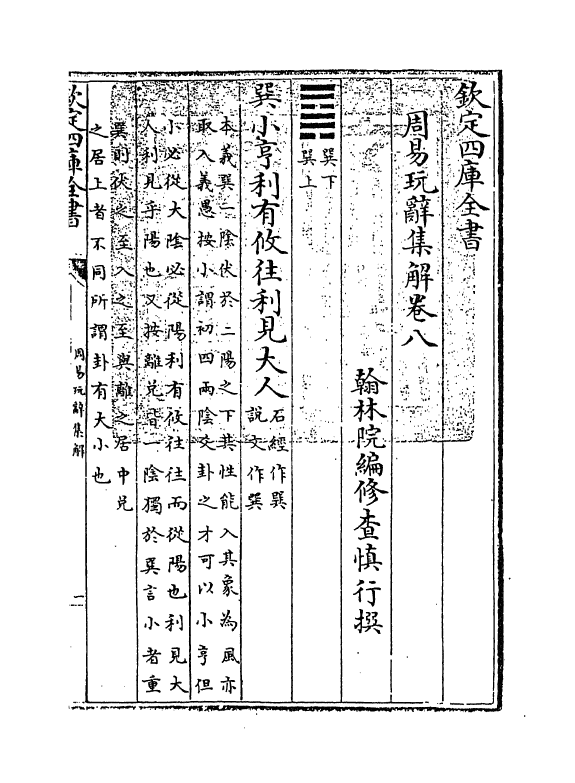 欽定四庫全書
周易玩辭集解卷八
翰林院編修查慎行撰
巽下
巽上
巽小亨利有攸往利見大人
石經作巽
說文作㢲
本義巽一陰伏於二陽之下其性能入其象為風亦
取入義愚按小謂初四兩陰爻卦之才可以小亨但
小必從大陰必從陽利有攸往往而從陽也利見大
人利見乎陽也又按離兌皆一陰獨於巽言小者重
巽則伏之至入之至與離之居中兌
之居上者不同所謂卦有大小也
欽定四庫全書
周易玩辭集解
一